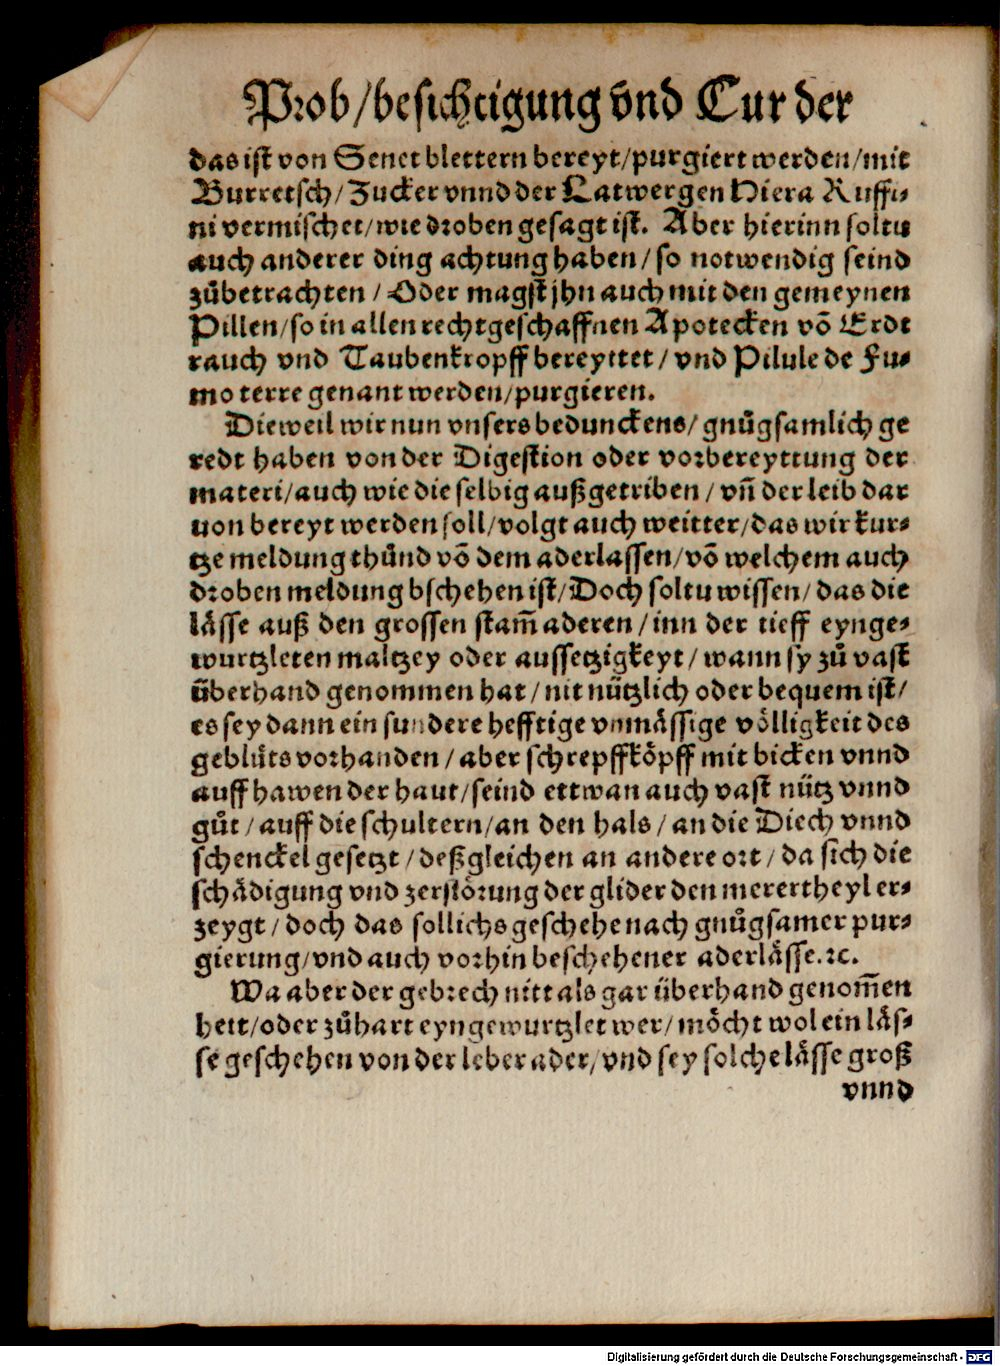 Prob/besichtigung vnd Cur der
das ist von Senet blettern bereyt/purgiert werden/mit
Burretsch/Zucker vnnd der Latwergen Hiera Ruffi-
ni vermischet/wie droben gesagt ist. Aber hierinn soltu
auch anderer ding achtung haben/so notwendig seind
zůbetrachten/Oder magst jhn auch mit den gemeynen
Pillen/so in allen rechtgeschaffnen Apotecken võ Erdt
rauch vnd Taubenkropff bereyttet/vnd Pilule de Fu-
mo terre genant werden/purgieren.
Dieweil wir nun vnsers beduncken​s/gnůgsamlich ge
redt haben von der Digestion oder vorbereyttung der
materi/auch wie die selbig außgetriben/vñ der leib dar
uon bereyt werden soll/volgt auch weitter/das wir kur-
tze meldung thůnd võ dem aderlassen/võ welchem auch
droben meldung bschehen ist/Doch soltu wissen/das die
lässe auß den grossen stam̃ aderen/inn der tieff eynge-
wurtzleten maltzey oder aussetzigkeyt/wann sy zů vast
überhand genommen hat/nit nützlich oder bequem ist/
es sey dann ein sundere hefftige vnmässige völligkeit des
geblüts vorhanden/aber schrepffköpff mit bicken vnnd
auff hawen der haut/seind ettwan auch vast nütz vnnd
gůt/auff die schultern/an den hals/an die Diech vnnd
schenckel gesetzt/deßgleichen an andere ort/da sich die
schädigung vnd zerstörung der glider den merertheyl er-
zeygt/doch das sollichs geschehe nach gnůgsamer pur-
gierung/vnd auch vorhin beschehener aderlässe.ꝛc.
Wa aber der gebrech nitt als gar überhand genom̃en
hett/oder zůhart eyngewurtzlet wer/möcht wol ein läs-
se geschehen von der leber ader/vnd sey solche lässe groß
vnnd
Digitalisierung gefördert durch die Deutsche Forschungsgemeinschaft - DFG